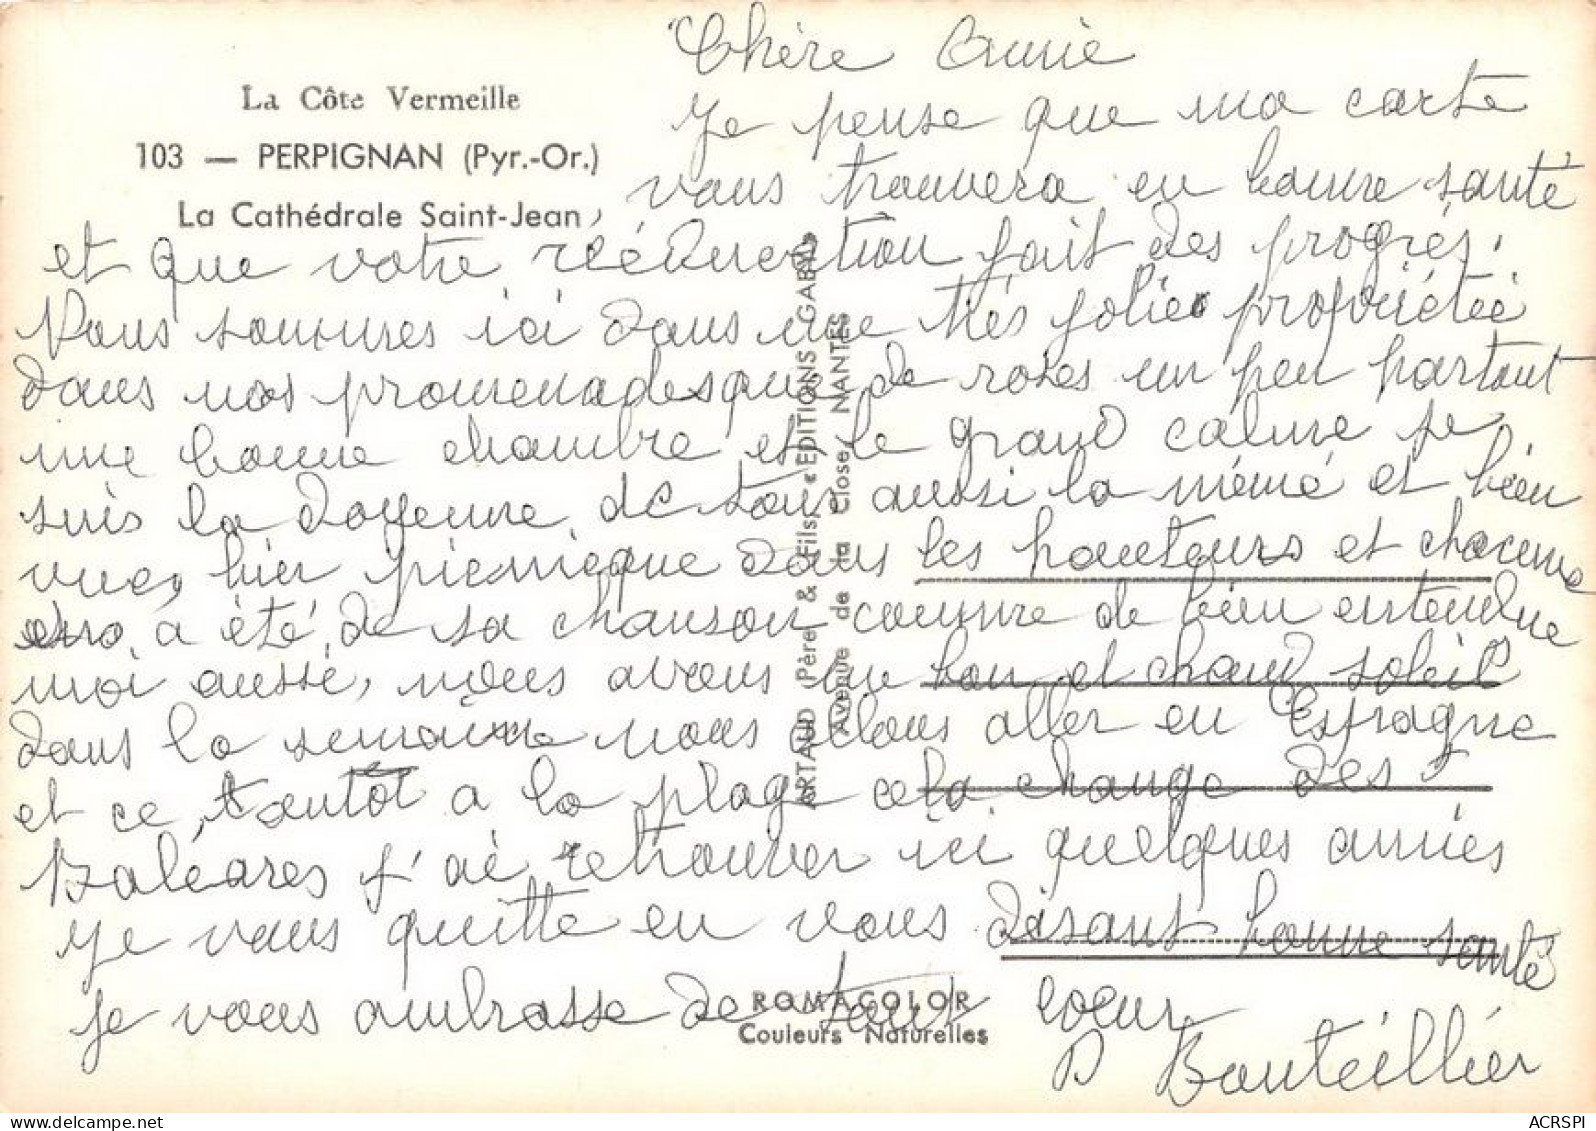 La Côte Vermeille
103 — PERPIGNAN (Pyr.-Or.)
La Cathédrale Saint-Jean
Chère Amie
Je pense que ma carte
vous trouvera en bonne santé
et que votre rééducation fait des progrès.
Nous sommes ici dans une très jolie propriétée
dans nos promenades que de roses un peu partout
une bonne chambre et le grand calme je
suis la doyenne de tous aussi la mémé et bien
vue, hier piemique dans les hauteurs et chacune
a été de sa chanson comme de bien entendue
moi aussi, nous avons un bon et chaud soleil
dans la semaine nous allons aller en Espagne
et ce tantôt a la plage cela change des
Baléares j'ai retrouver ici quelques amies
Je vous quitte en vous disant bonne santé
je vous ambrasse de tout cœur
D Bouteillier
ARTAUD Père & Fils, « EDITIONS GABY »
Avenue de la Close, NANTES
ROMACOLOR
Couleurs Naturelles
www.delcampe.net
ACRSPI